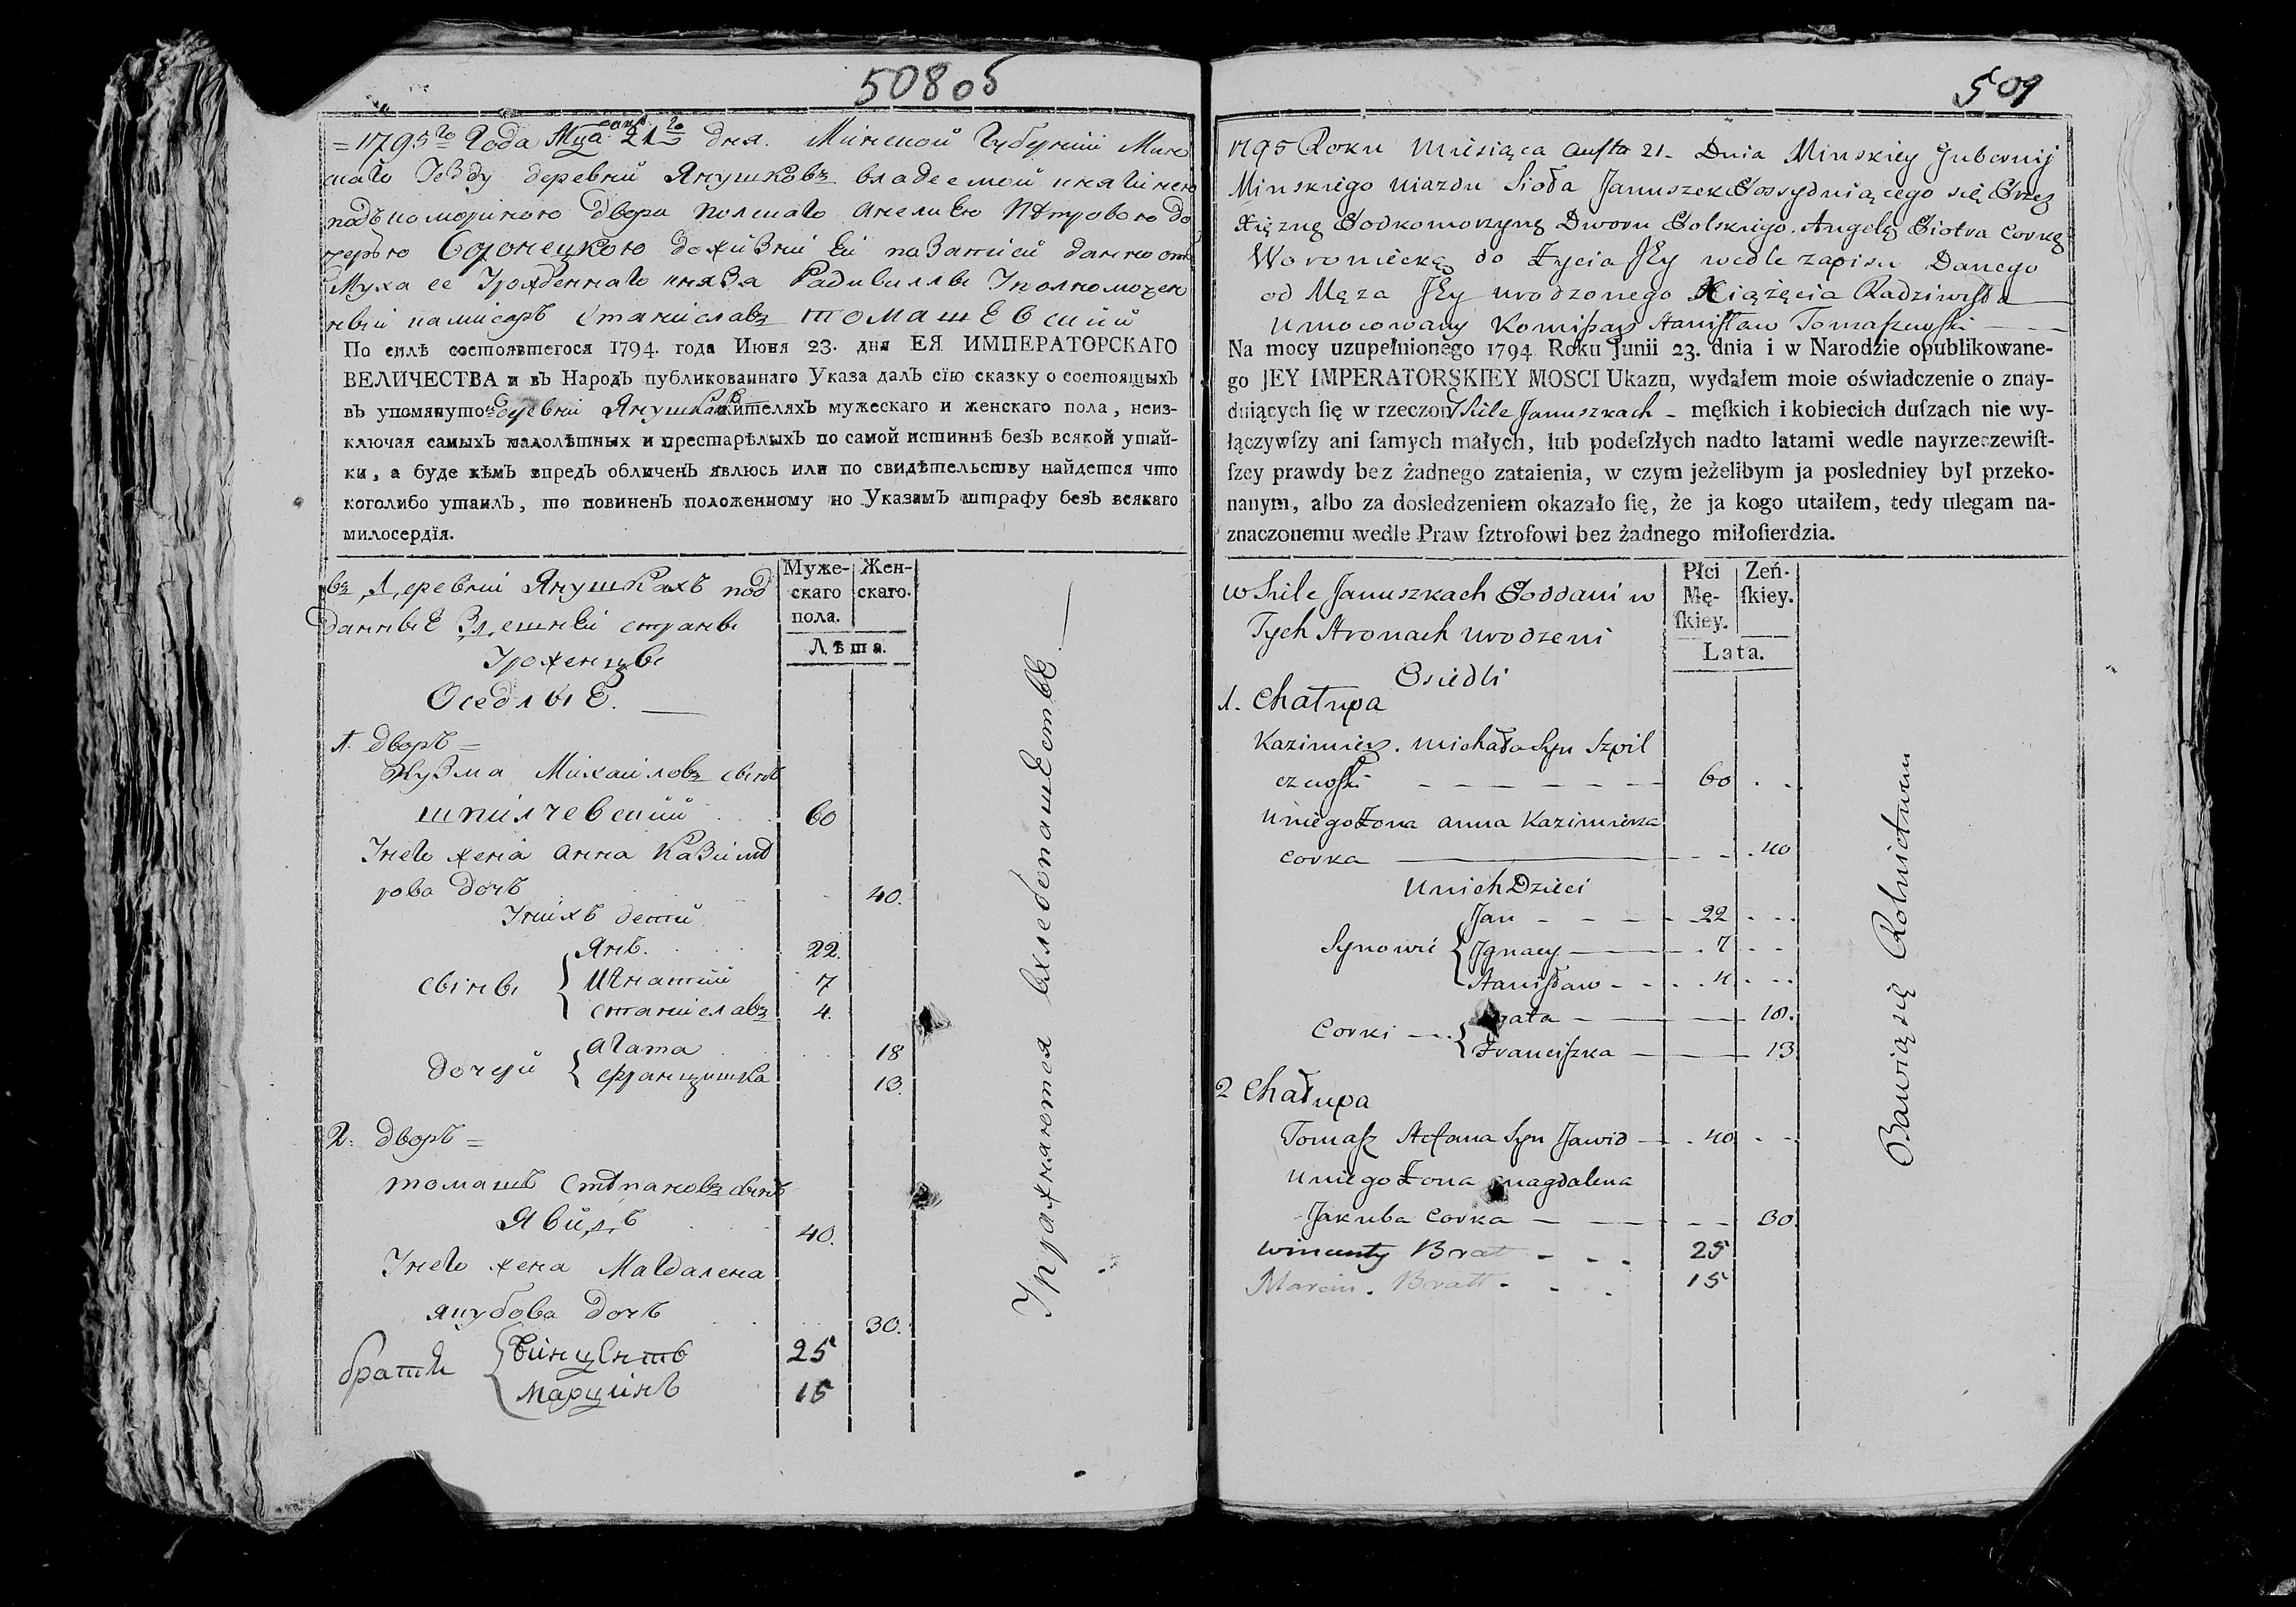 508 об
= 1795го Года Мца 21го дня. Минской Губерній Мин
скаго Уезду деревни Янушковъ владеемой княгинею
подъкомориною двора полскаго Анелиею Петровою до
черью Воронецкою дожизни Ей позаписи данной отъ
Мужа ее Урожденнаго князя Радивиллы Уполномочен
ный камисаръ Станиславъ томашевский
По силѣ состоявшегося 1794. года Июня 23. дня ЕЯ ИМПЕРАТОРСКАГО
ВЕЛИЧЕСТВА и въ Народъ публикованнаго Указа далъ сїю сказку о состоящыхъ
въ упомянутой деревни Янушкахъ жителяхъ мужескаго и женскаго пола, неиз-
ключая самыхъ малолѣтных и престарѣлыхъ по самой истиннѣ безъ всякой утай-
ки, а буде кѣмъ впредъ обличенъ явлюсь или по свидѣтельству найдется что
коголибо утаилъ, то повиненъ положенному по Указамъ штрафу безъ всякаго
милосердїя.
въ Деревни Янушкахъ под
данные Здешней страны
Уроженцы
Оседлые.
Муже-
скаго
пола.
Жен-
скаго.
Лѣта.
1. дворъ =
Кузма Михайловъ сынъ
шпилчевский 60
Унего жена анна Казими
рова дочь 40.
Унихъ детей
сыны
Янъ. 22.
Игнатий 7
станиславъ 4.
дочери
агата 18
францишка 13.
2. дворъ =
томашъ степановъ сынъ
Явидъ 40.
Унего жена Магдалена
якубова дочь 30.
братья
винцентъ 25
марцинъ 15
Упражнаются вхлебопашестве
509
1795 Roku Miesiąca Austa 21. Dnia Minskiey Gubernij
Minskiego Uiazdu Sioła Januszek Possydniącego się Przez
Xięznę Podkomorzynę Dworu Polskiego. Angelę Piotra Corkę
Woroniecką do Życia Jey wedle zapisu Danego
od Męza Jey urodzonego Xiążęcia Radziwiłła
Umocowany Komissarz Stanisław Tomaszewski
Na mocy uzupełnionego 1794 Roku Junii 23. dnia i w Narodzie opublikowane-
go JEY IMPERATORSKIEY MOSCI Ukazu, wydałem moie oświadczenie o znay-
duiących ſię w rzeczon Siele Januszkach - męſkich i kobiecich duſzach nie wy-
łączywſzy ani ſamych małych, lub podeſzłych nadto latami wedle nayrzeczewiſt-
ſzey prawdy bez żadnego zataienia, w czym jeżelibym ja posledniey był przeko-
nanym, albo za dosledzeniem okazało ſię, że ja kogo utaiłem, tedy ulegam na-
znaczonemu wedle Praw ſztrofowi bez żadnego miłoſierdzia.
w Siele Januszkach Poddani w
Tych Stronach urodzeni
Osiedli
Płci
Mę-
ſkiey.
Zeń-
ſkiey.
Lata.
1. Chałupa
Kazimierz. Michała Syn Szpil
czewski 60
Uniego Żona Anna Kazimierza
Corka 40
Unich Dzieci
Synowie
Jan 22
Ignacy 7
Stanisław 4
Corki
gata 18.
Franciszka 13
2 Chałupa
Tomasz Stefana Syn Jawid 40
Uniego Żona Magdalena
Jakuba Corka 30.
Wincenty Brat 25
Marcin. Bratt 15
Bawią się Rolnictwem